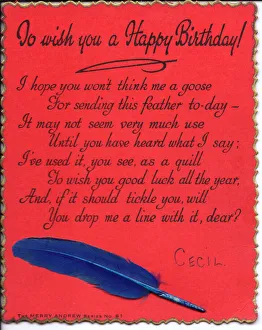 To wish you a Happy Birthday!
I hope you won't think me a goose
For sending this feather to-day –
It may not seem very much use
Until you have heard what I say;
I've used it, you see, as a quill
To wish you good luck all the year,
And, if it should tickle you, will
You drop me a line with it, dear?
CECIL
The MERRY ANDREW Series No. 81